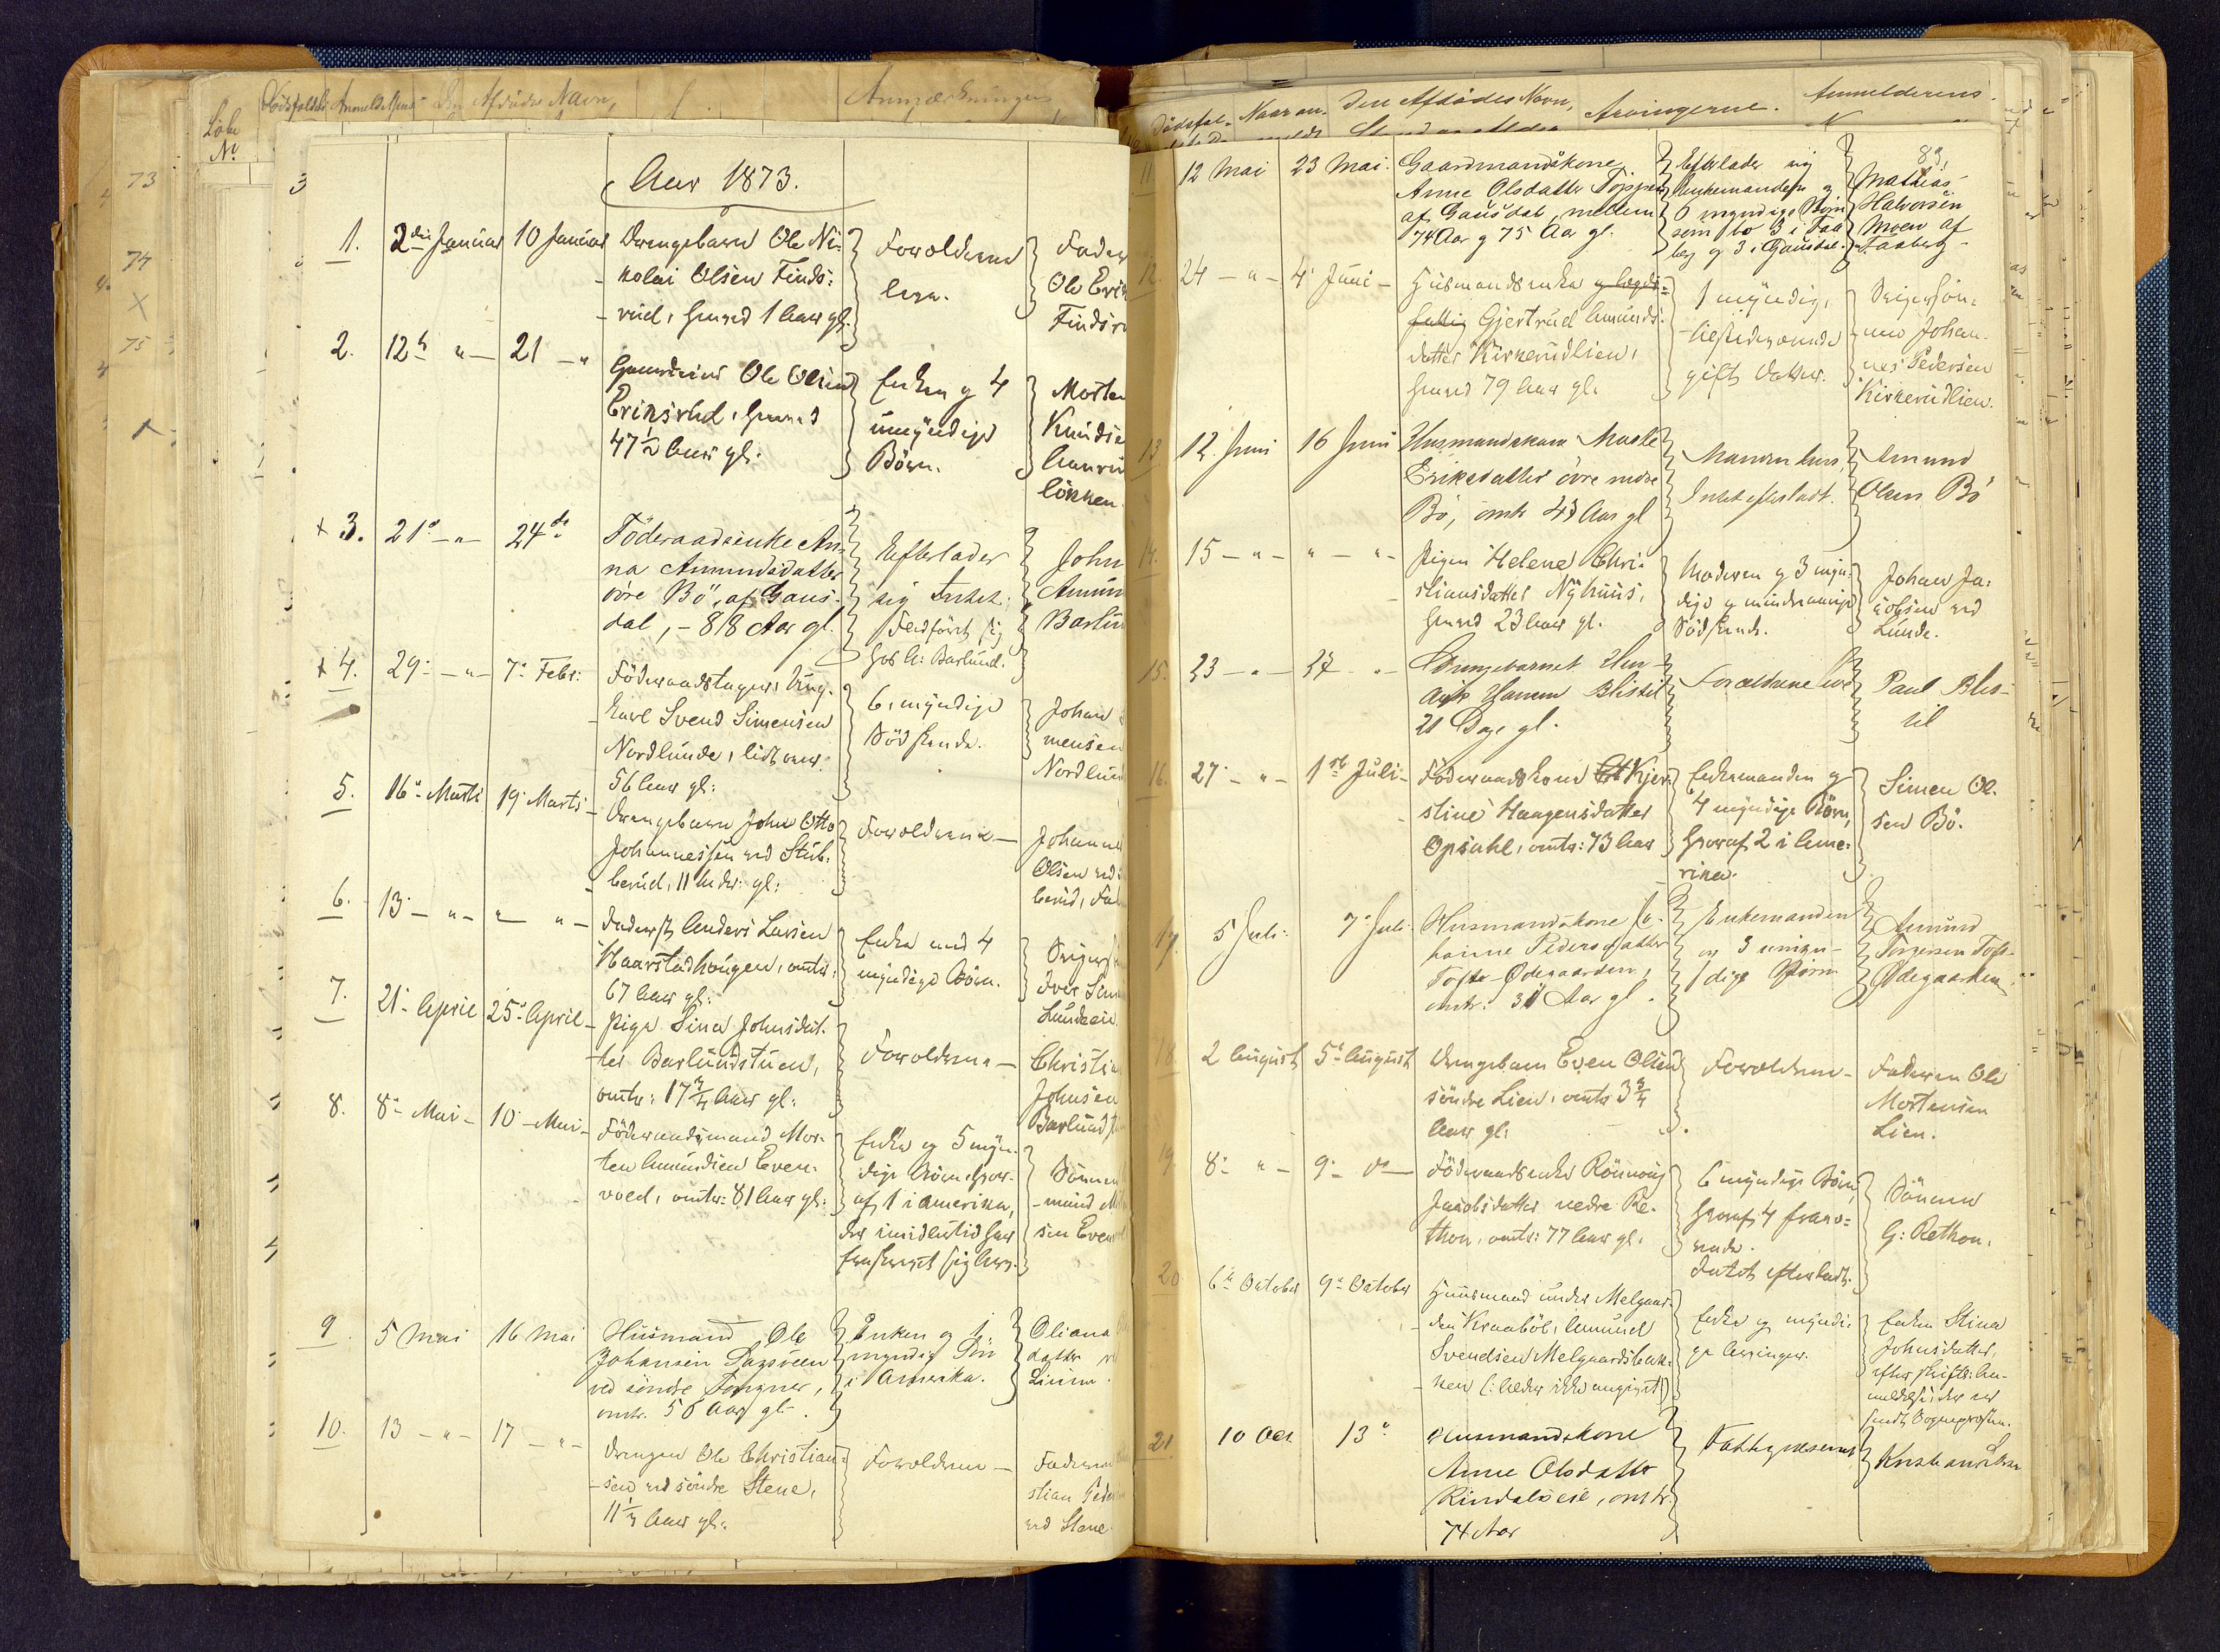 Löbe
No
Dødsfaldet Anmeldelsens Den Afdødes Navn,
Anmærkninger
Aar 1873.
1. 2den Januar 10 Januar Drengebarn Ole Ni-
kolai Olsen Finds-
rud, henved 1 Aar gl.
Forældrene
leva.
Fader
Ole Erik
Findsru
2. 12te " 21 "
Gaardmand Ole Olsen
Eriksrud, henved
47 1/2 Aar gl.
Enken og 4
umyndige
Børn.
Morten
Knudse
Aanrud
løkken.
+ 3. 21de " 24de
Föderaadsenke An-
na Amundsdatter
övre Bö, af Gaus-
dal, - 88 Aar gl.
Efterlader
sig Intet.
Indført sig
hos A: Barlund.
John
Amun
Barlun
+ 4. 29 " 7 Febr:
Föderaadstager, Ung-
karl Svend Simensen
Nordlunde, lidt over
56 Aar gl:
6 myndige
Södskende.
Johan
mensen
Nordlund
5. 16 Marts 19 Marts
Drengebarn John Otto
Johannessen ved Stub-
berud, 11 Mdr: gl:
Forældrene
Johannes
Olsen ved
berud, Fad
6. 13 " " "
Inderst Anders Larsen
Haarstadhaugen, omtr.
67 Aar gl:
Enke med 4
myndige Börn.
Svigers
Iver Sim
Lundeein
7. 21 April 25 April
Pige Sina Johnsdat-
ter Barlundstuen,
omtr: 17 3/4 Aar gl:
Forældrene
Christia
Johnsen
Barlundst
8. 8 Mai 10 Mai
Föderaadsmand Mor-
ten Amundsen Even-
vold, omtr: 81 Aar gl:
Enke og 5 myn-
dige Börn, hvor-
af 1 i Amerika,
der imidlertid har
fraskrevet sig Arv.
Sönnen
mund M
sen Evenvol
9. 5 Mai 16 Mai Husmand Ole
Johansen
ved söndre Fougner,
omtr. 56 Aar gl.
Enken og 1
myndig Sön
i Amerika.
Oliana
datter
10. 13 " 17 "
Drengen Ole Christian-
sen ved söndre Stene,
11 1/2 Aar gl.
Forældrene
Faderen
stian Peder
ved Stene
83.
11 12 Mai 23 Mai. Gaardmandskone
Anne Olsdatter
af Gausdal, mellem
74 Aar og 75 Aar gl.
Efterlader sig
Enkemanden og
6 myndige Börn
som bo 3 i Faa
berg og 3 i Gausdal.
Mathias
Halvorsen
Moen af
Faaberg
12. 24 " 4 Juni
Husmandsenke og Lægds-
fattig Gjertrud Amunds-
datter Kirkerudlien,
henved 79 Aar gl.
1 myndig,
tilstedeværende
gift Datter.
Svigersön-
nen Johan-
nes Pedersen
Kirkerudlien.
13 12. Juni 16 Juni Husmandskone Marte
Eriksdatter övre nordre
Bö, omtr 43 Aar gl
Manden lever,
Intet efterladt.
Amund
Olsen Bö
14. 15 " " "
Pigen Helene Chri-
stiansdatter Nyhuus,
henved 23 Aar gl.
Moderen og 3 myn-
dige og mindreaarige
Södskende.
Johan Ja-
cobsen ved
Lunde.
15. 23 " 27 "
Drengebarnet
Hansen Blistil
21 Dage gl.
Forældrene
Paul Blis-
til
16. 27 " 1ste Juli
Föderaadskone Kjer-
stine Haagensdatter
Opsahl, omtr: 73 Aar
Enkemanden og
4 myndige Börn,
hvoraf 2 i Ame-
rika.
Simen Ol-
sen Bö.
17. 5 Juli 7 Juli Husmandskone Jo-
hanne Pedersdatter
Tofte-Ødegaarden,
omtr: 31 Aar gl.
Enkemanden
og 3 umyn-
dige Börn
Amund
Torgersen Tofte-
Ødegaarden
18. 2 August 5 August Drengebarn Even Olsen
söndre Lien, omtr 3 3/4
Aar gl:
Forældrene
Faderen Ole
Mortensen
Lien.
19. 8 " 9
Föderaadsenke Rönnoug
Jacobsdatter nedre Re-
thon, omtr: 77 Aar gl.
6 myndige Börn,
hvoraf 4 fravæ-
rende.
Intet efterladt.
Sönnen
G: Rethon.
20 6te October 9 October
Huusmand under Melgaar-
den Kraaböl, Amund
Svendsen Melgaardsbak-
ken (: Alder ikke angivet:)
Enke og myndi-
ge Arvinger.
Enken Stina
Johnsdatter,
efter skriftl: An-
meldelse, der er
sendt Sognepræsten.
21 10 Oct 13
Husmandskone
Anne Olsdatter
Rindalseie, omtr.
74 Aar
Fattigvæsenet